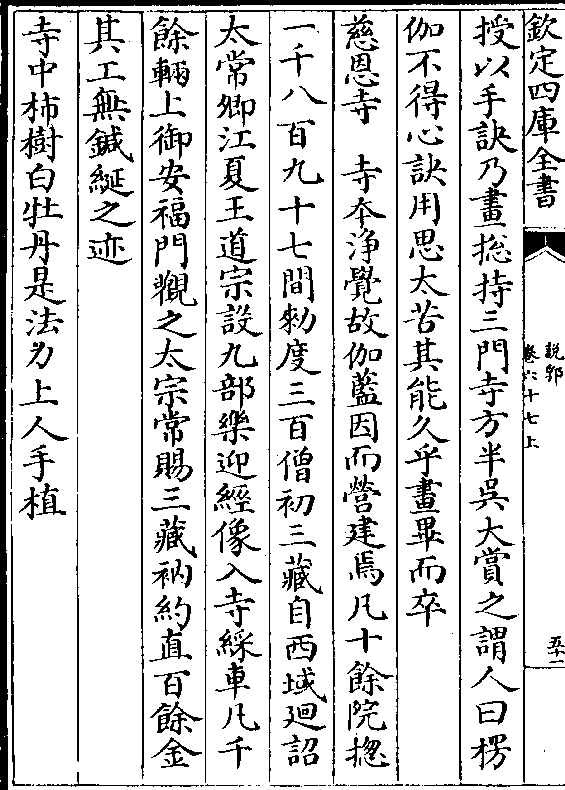 欽定四庫全書
說郛
卷六十七上
五十二
授以手訣乃畫摠持三門寺方半吳大賞之謂人曰楞
伽不得心訣用思太苦其能久乎畫畢而卒
慈恩寺　寺夲浄覺故伽藍因而營建焉凡十餘院摠
一千八百九十七間勅度三百僧初三藏自西域廻詔
太常卿江夏王道宗設九部樂迎經像入寺綵車凡千
餘輛上御安福門觀之太宗常賜三藏衲約直百餘金
其工無鍼綖之迹
寺中柿樹白牡丹是法力上人手植